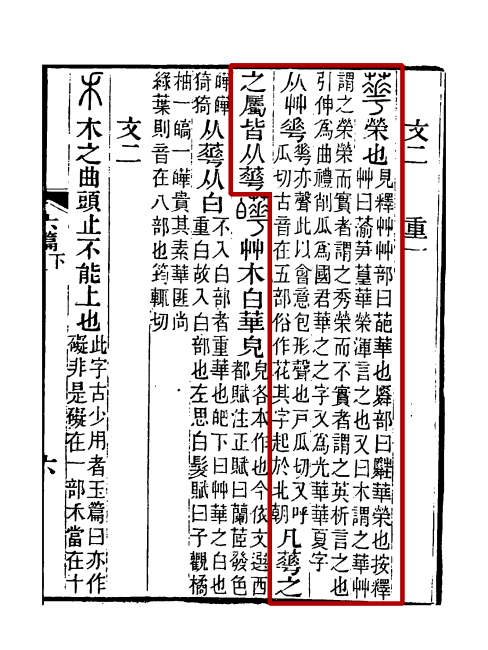 文二 重一
華榮也見釋艸艸部曰葩華也䑞部曰䑝華榮也按釋
艸曰蕍芛葟華榮渾言之也又曰木謂之華艸
謂之榮榮而實者謂之秀榮而不實者謂之英析言之也
引伸爲曲禮削瓜爲國君華之之字又爲光華華夏字
从艸𠌶𠌶亦聲此以會意包形聲也戶瓜切又呼
瓜切古音在五部俗作花其字起於北朝凡華之
之屬皆从華
艸木白華皃皃各本作也今依文選西
都賦注正賦曰蘭茝發色
曄曄
猗猗
从華从白不入白部者重華也皅下曰艸華之白也
重白故入白部也左思白髮賦曰子觀橘
柚一皜一曄貴其素華匪尚
綠葉則音在八部也筠輒切
文二
𥝌木之曲頭止不能上也此字古少用者玉篇曰亦作
礙非是礙在一部禾當在十
六篇下
六